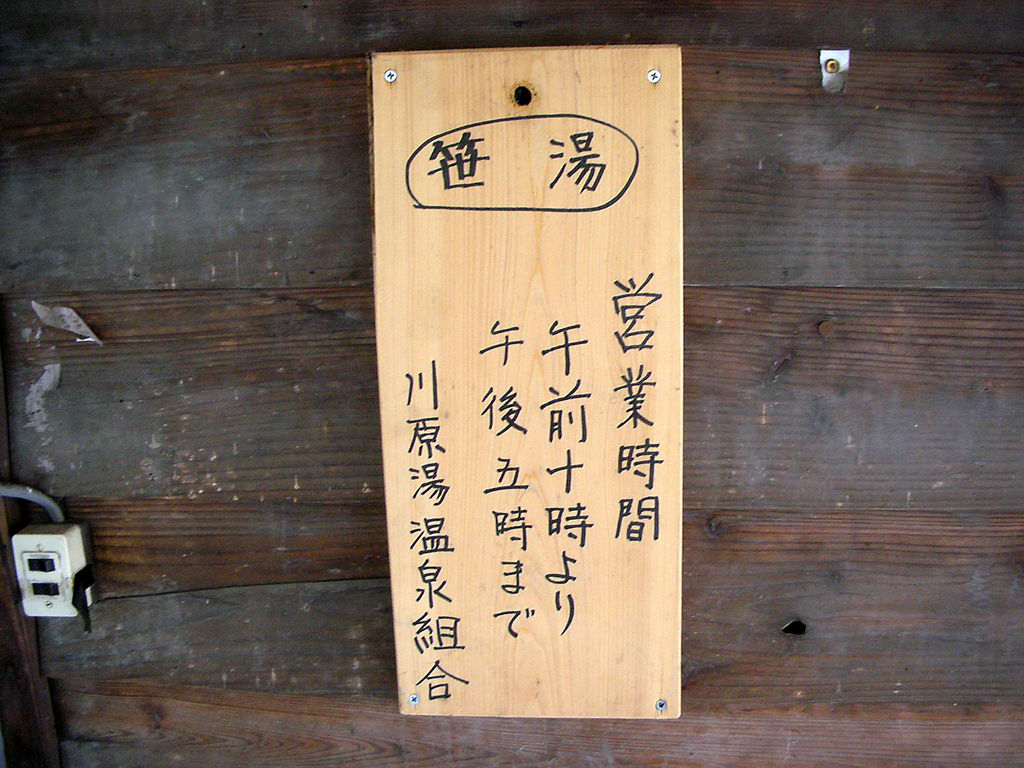 笹湯
営業時間
午前十時より
午後五時まで
川原湯温泉組合